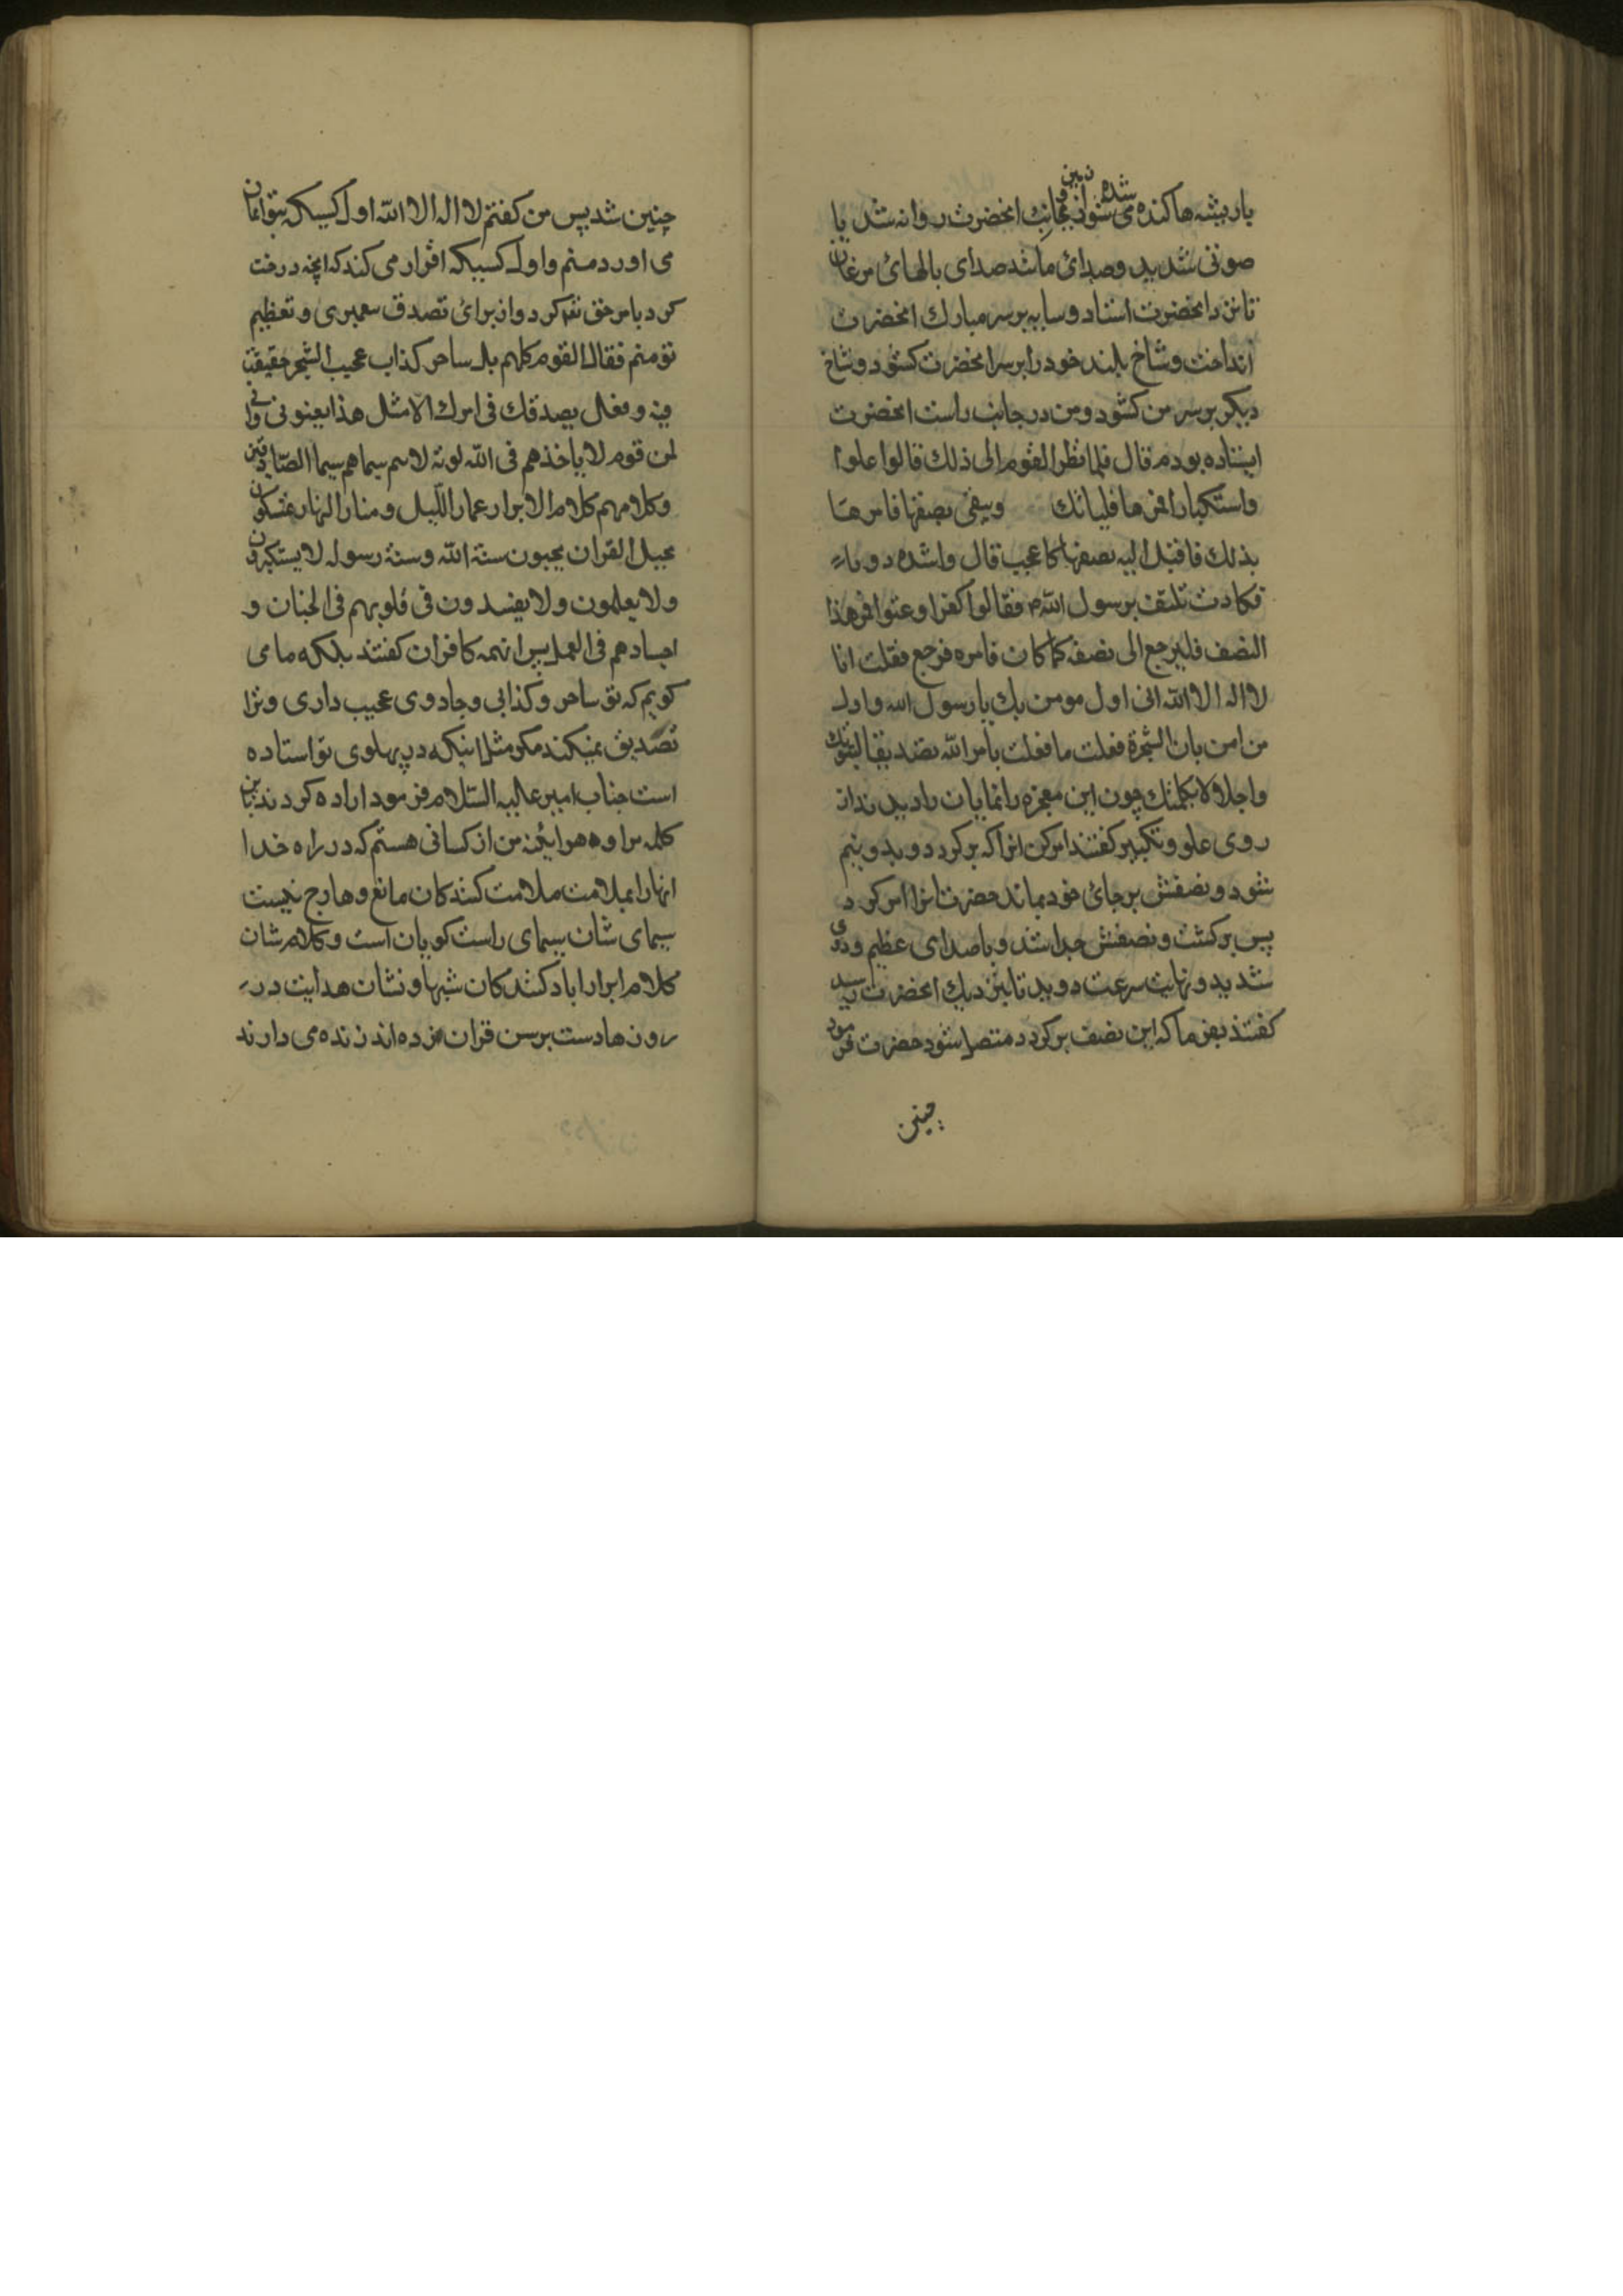 باریشه ها کنده شده می شود از زمین و بجانب انحضرت روانه شد با
صوتی شدید و صدائ مانند صدای بالهائ مرغان
تا نزد انحضرت استاد و سایه بر سر مبارك انحضرت
انداخت و شاخ بلند خود را بر سر انحضرت کشود و شاخ
دیکر بر سر من کشود و من در جانب راست انحضرت
ایستاده بودم قال فلما نظر القوم الی ذلك قالوا علوا
واستکبارا فمرها فلیاتك ویبقی نصفها فامرها
بذلك فاقبل الیه نصفها کاعجب قال واشده دویا
فکادت تلتف برسول الله م فقالوا کفرا وعتوا فمر هذا
النصف فلیرجع الی نصفه کما کان فامره فرجع فقلت انا
لا اله الا الله انی اول مومن بك یا رسول الله واول
من امن بان الشجرة فعلت ما فعلت بامر الله تصدیقا لنبوتك
واجلالا لکلمتك چون این معجزه را نمایان را دیدند از
روی علو و تکبر کفتند امر کن انرا که برکردد و بدو نیم
شود و نصفش بر جائ خود بماند حضرت انرا امر کرد
پس برکشت و نصفش جدا شد و با صدای عظیم و دوی
شدید و نهایت سرعت دوید تا بنزدیك انحضرت رسید
کفتند بفرما که این نصف برکردد متصل شود حضرت فرمود
چنین
چنین شد پس من کفتم لا اله الا الله اول کسیکه بتو ایمان
می اورد منم و اول کسیکه اقرار می کند که انچه درخت
کرد بامر حق تع کرد و از برائ تصدق پیغمبری و تعظیم
تو منم فقال القوم کلهم بل ساحر کذاب عجیب السحر خفیف
فیه وهل یصدقك فی امرك الا مثل هذا یعنونی وانی
لمن قوم لا یاخذهم فی الله لومة لائم سیماهم سیما الصادقین
وکلامهم کلام الابرار عمار اللیل ومنار النهار متمسکون
بحبل القران یحیون سنة الله وسنة رسوله لا یستکبرون
ولا یعلون ولا یفسدون فی قلوبهم فی الجنان و
اجسادهم فی العمل پس انهمه کافران کفتند بلکه ما می
کویم که تو ساحر و کذابی و جادوی عجیب داری و ترا
تصدیق نمیکند مکر مثل اینکه در پهلوی تو استاده
است جناب امیر علیه السلام فرمود اراده کردند باین
کلمه مرا و هر اینه من از کسانی هستم که در راه خدا
انها را بملامت ملامت کنندکان مانع و هارج نیست
سیمای شان سیمای راست کویان است و کلام شان
کلام ابرار اباد کنندکان شبها و نشان هدایت در
روزها دست برسن قران زده اند زنده می دارند